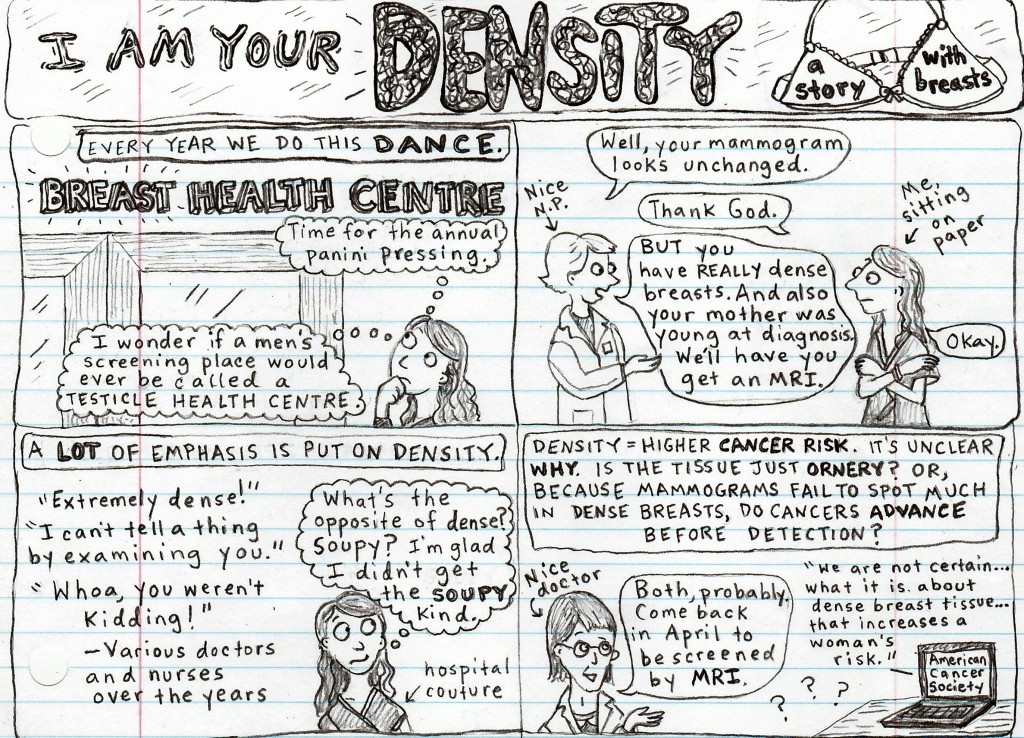 I AM YOUR DENSITY
a
story
with
breasts
EVERY YEAR WE DO THIS DANCE.
BREAST HEALTH CENTRE
Time for the annual
panini pressing.
I wonder if a men's
screening place would
ever be called a
TESTICLE HEALTH CENTRE.
Well, your mammogram
looks unchanged.
Nice
N.P.
Thank God.
Me,
sitting
on
paper
BUT you
have REALLY dense
breasts. And also
your mother was
young at diagnosis.
We'll have you
get an MRI.
Okay.
A LOT OF EMPHASIS IS PUT ON DENSITY.
"Extremely dense!"
"I can't tell a thing
by examining you."
"Whoa, you weren't
kidding!"
- Various doctors
and nurses
over the years
What's the
opposite of dense?
Soupy? I'm glad
I didn't get
the SOUPY
kind.
hospital
couture
DENSITY = HIGHER CANCER RISK. IT'S UNCLEAR
WHY. IS THE TISSUE JUST ORNERY? OR,
BECAUSE MAMMOGRAMS FAIL TO SPOT MUCH
IN DENSE BREASTS, DO CANCERS ADVANCE
BEFORE DETECTION?
Nice
doctor
Both, probably.
Come back
in April to
be screened
by MRI.
"We are not certain...
what it is about
dense breast tissue...
that increases a
woman's
risk."
American
Cancer
Society
? ? ?